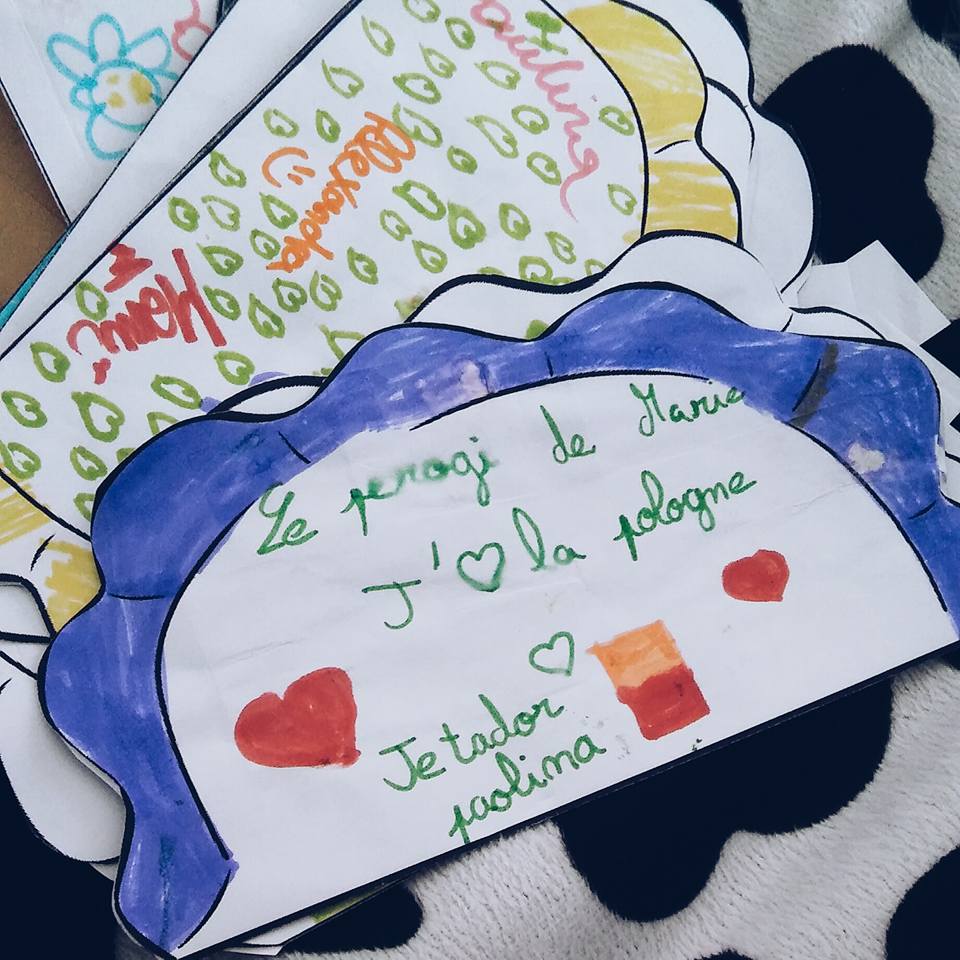 Paulina
Alexandra
Mami
Le perogi de Marie
J'♡ la pologne
Je tador
paolina